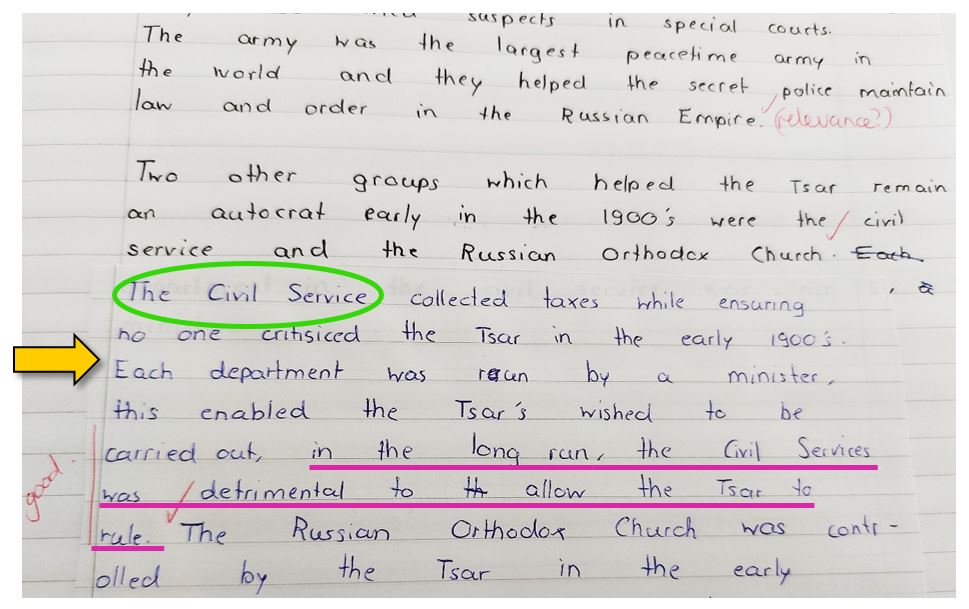 suspects in special courts.
The army was the largest peacetime army in
the world and they helped the secret police maintain
law and order in the Russian Empire. (relevance?)
Two other groups which helped the Tsar remain
an autocrat early in the 1900's were the civil
service and the Russian Orthodox Church. Each
The Civil Service collected taxes while ensuring
no one critisiced the Tsar in the early 1900's.
Each department was run by a minister,
this enabled the Tsar's wished to be
carried out, in the long run, the Civil Services
good.
was detrimental to th allow the Tsar to
rule. The Russian Orthodox Church was contr-
olled by the Tsar in the early